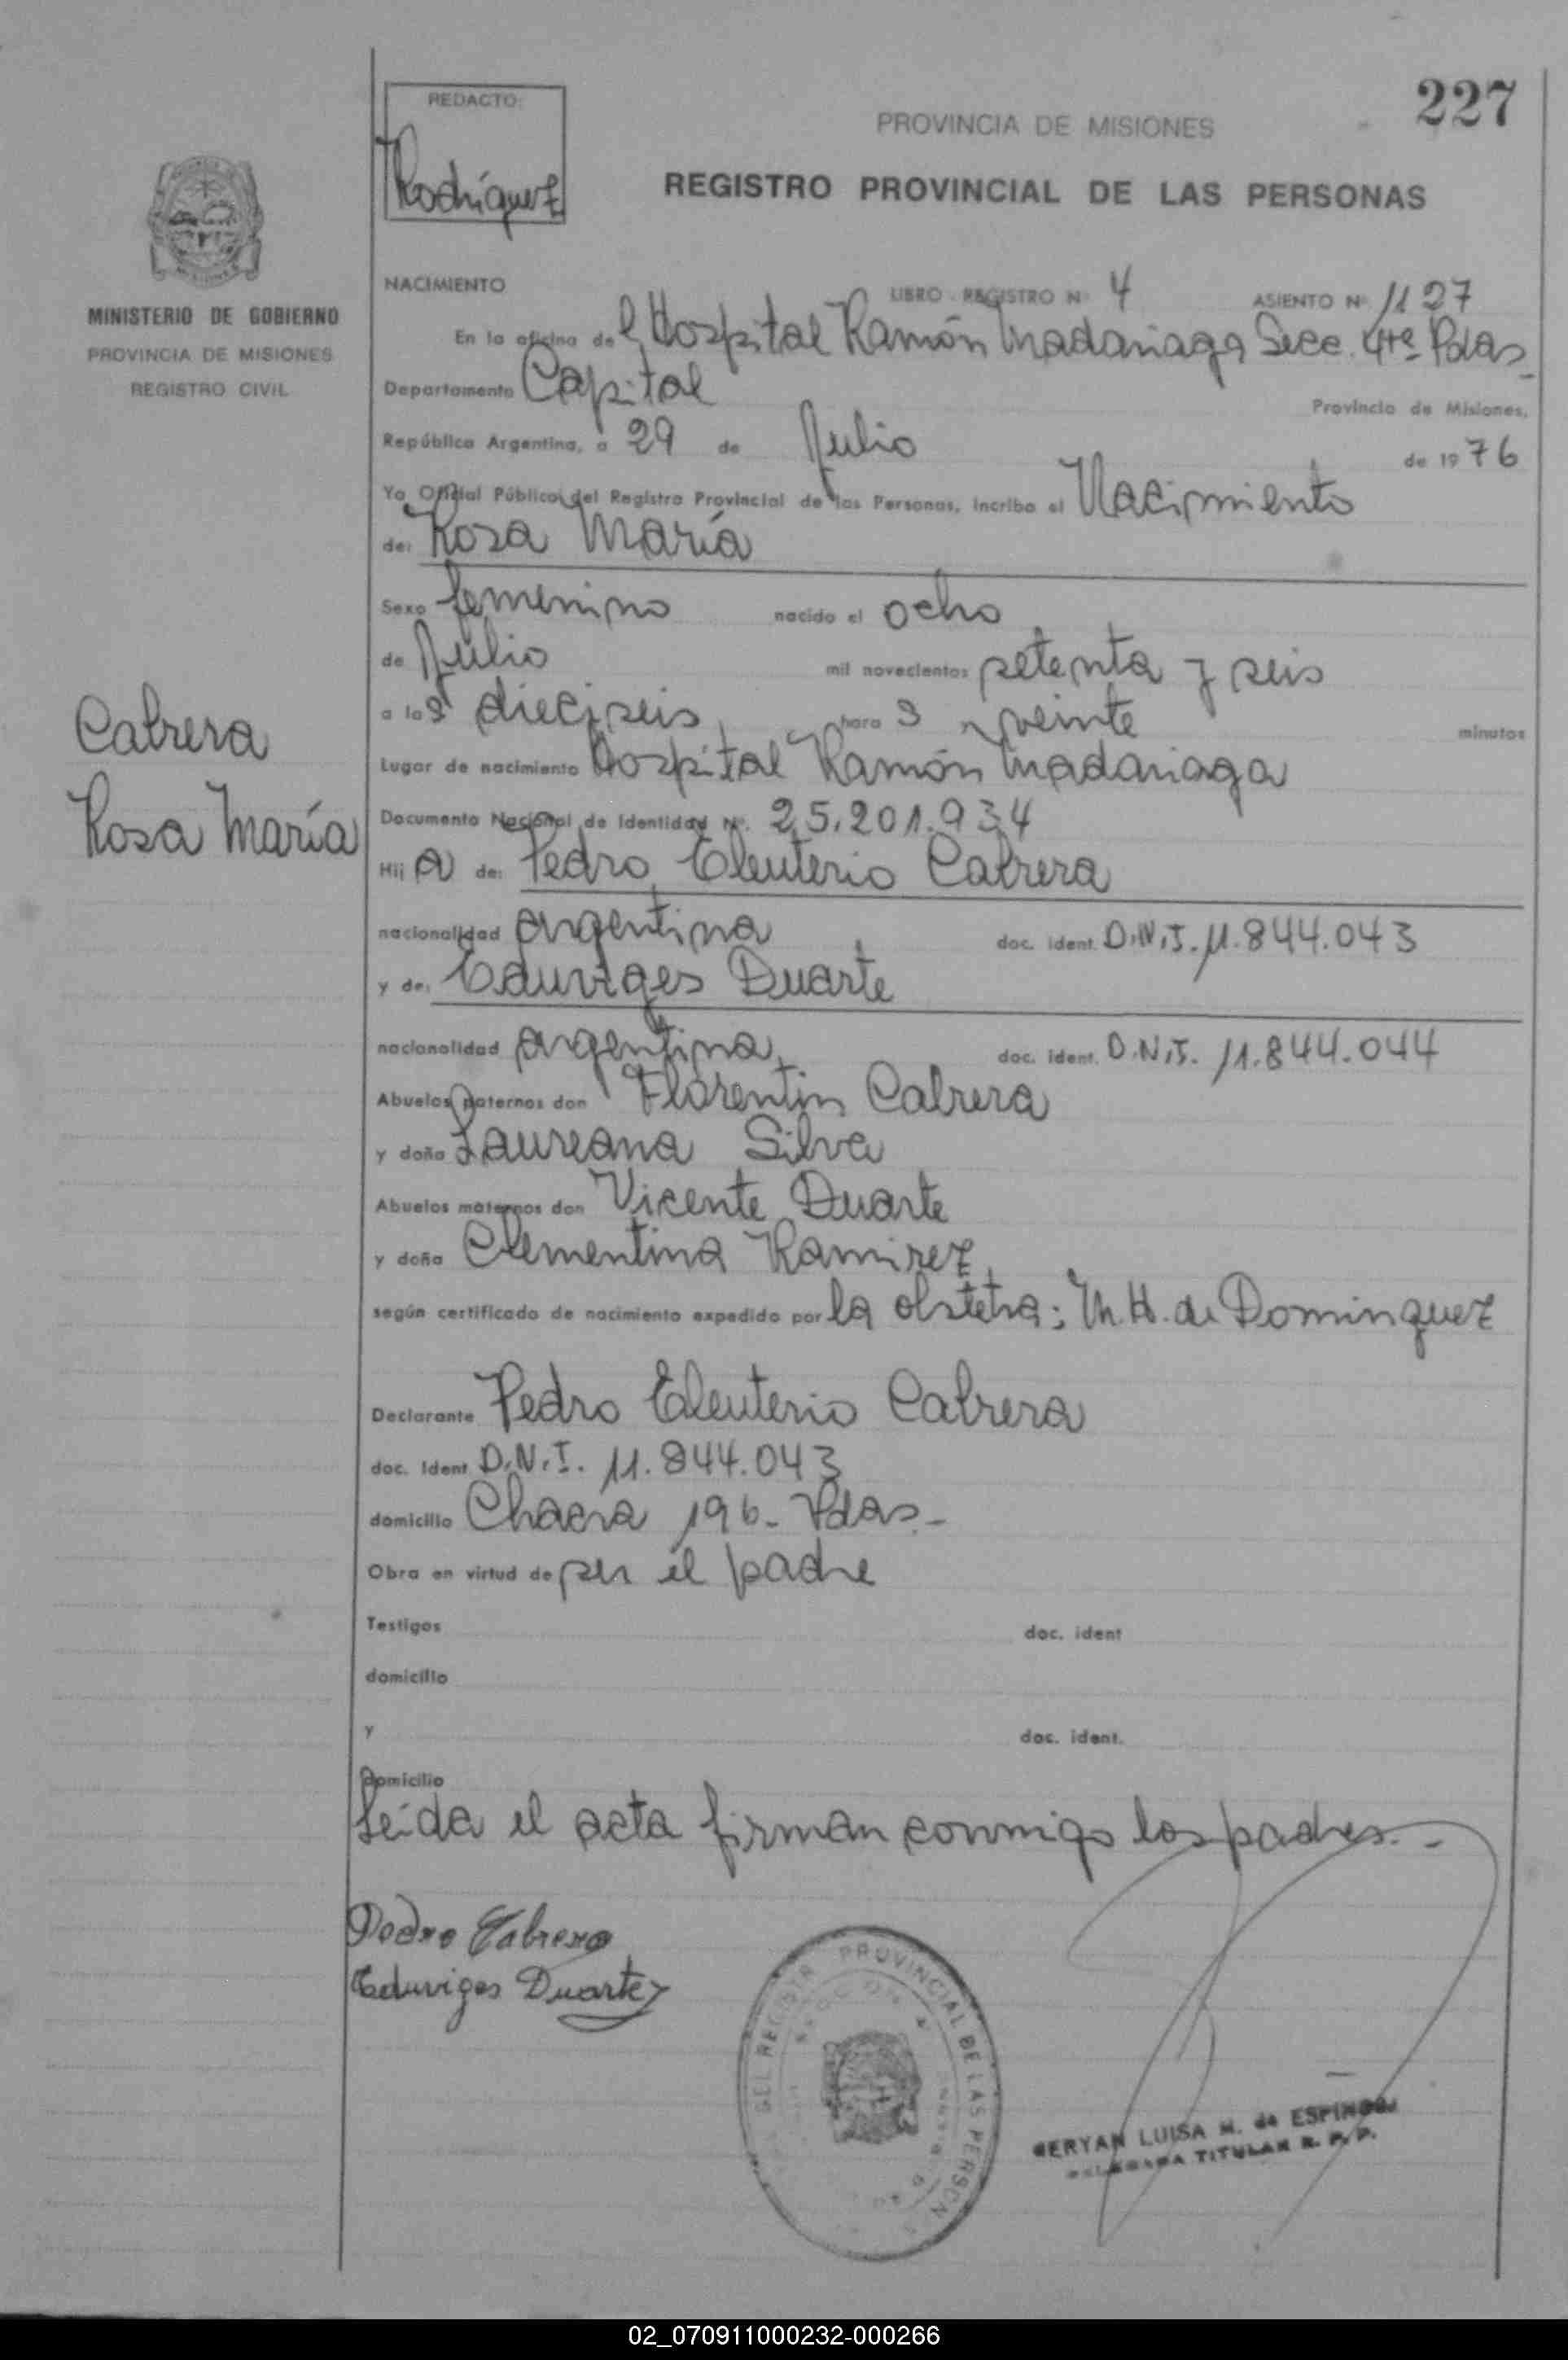 227
REDACTO:
Rodríguez
PROVINCIA DE MISIONES
REGISTRO PROVINCIAL DE LAS PERSONAS
MINISTERIO DE GOBIERNO
PROVINCIA DE MISIONES
REGISTRO CIVIL
Cabrera
Rosa María
NACIMIENTO LIBRO - REGISTRO Nº 4 ASIENTO Nº 1127
En la oficina del Hospital Ramón Madariaga Secc. 4ta Pdas_
Departamento Capital Provincia de Misiones,
República Argentina, a 29 de Julio de 1976
Yo Oficial Público del Registro Provincial de las Personas, incribo el Nacimiento
de: Rosa María
Sexo femenino nacido el ocho
de Julio mil novecientos setenta y seis
a las dieciseis horas veinte minutos
Lugar de nacimiento Hospital Ramón Madariaga
Documento Nacional de Identidad Nº. 25.201.934
Hija de: Pedro Eleuterio Cabrera
nacionalidad argentina doc. ident. D.N.I. 11.844.043
y de: Eduviges Duarte
nacionalidad argentina doc. ident. D.N.I. 11.844.044
Abuelos paternos don Florentin Cabrera
y doña Laureana Silva
Abuelos maternos don Vicente Duarte
y doña Clementina Ramirez
según certificado de nacimiento expedido por la obstetra: M.H. de Dominguez
Declarante Pedro Eleuterio Cabrera
doc. Ident D.N.I. 11.844.043
domicilio Chacra 196- Pdas.-
Obra en virtud de ser el padre
Testigos doc. ident
domicilio
y doc. ident.
domicilio
Leída el acta firman conmigo los padres.-
Pedro Cabrera
Eduviges Duarte
REGISTR PROVINCIAL DE LAS PERSON
LUISA M. de ESPINOSA
DELEGADA TITULAR R. P. P.
02_070911000232-000266